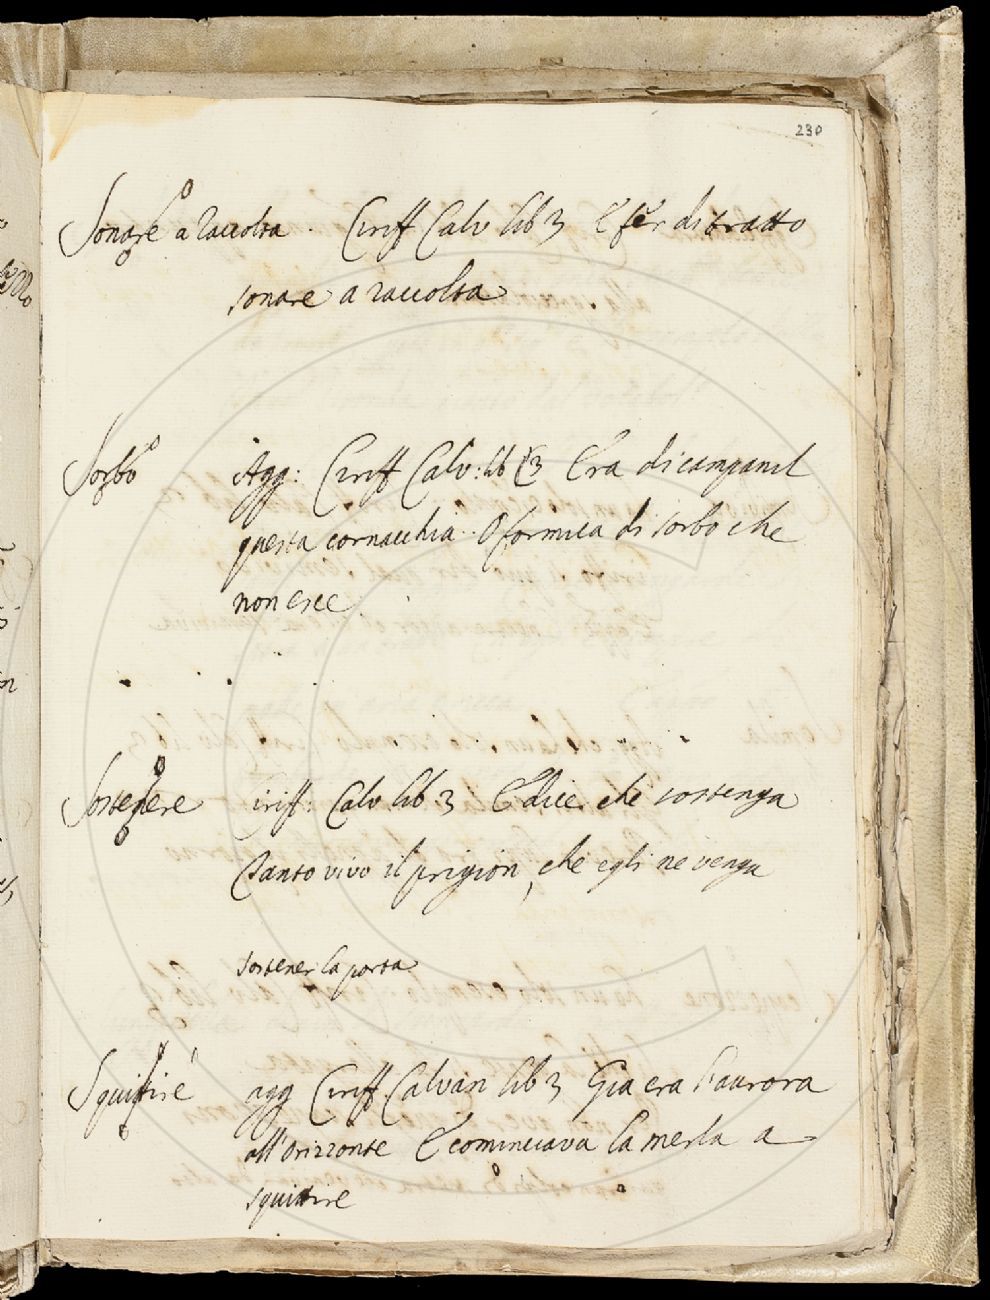 230
Sonare a raccolta. Ciriff Calv lib 3 E fer di tratto
sonare a raccolta
Sorbo Agg: Ciriff Calv: lib 3 Era di campanil
questa cornacchia. O formica di sorbo che
non esce
Sostenere Ciriff: Calv lib. 3 E dice che sostenga
Tanto vivo il prigion, che egli ne venga
sostener la porta
Squittire agg Ciriff Calvan lib 3 Gia era l'aurora
all'orizzonte E cominciava la merla a
squittire